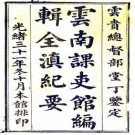 雲貴總督部堂丁鑒定
雲南課吏館編
輯全滇紀要
光緒三十一年冬十月本館排印